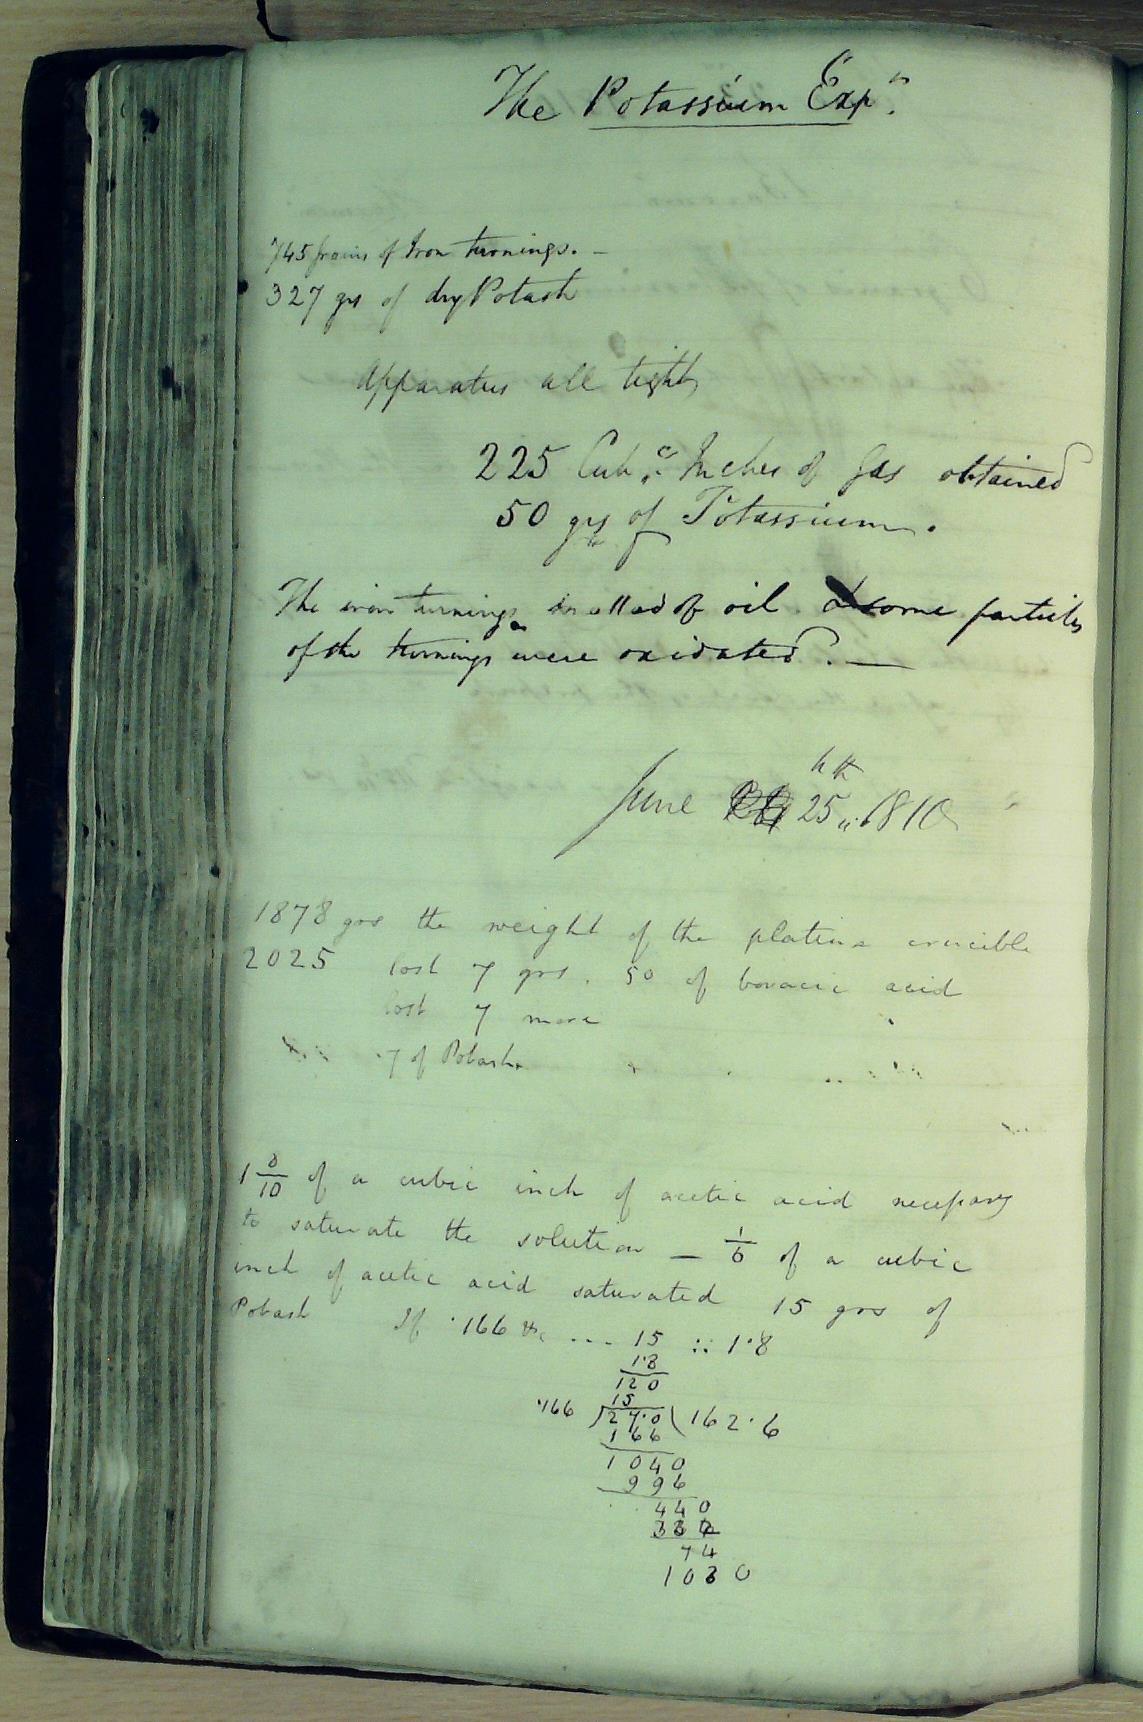 The Potassium Expn.
745 grains of Iron turnings. –
327 grs of dry Potash
Apparatus all tight
225 Cubc. Inches of Gas obtained
50 grs of Potassium.
The iron turnings smelled of oil. some particles
of the turnings were oxidated. —
June 25th 1810
1878 grs the weight of the platina crucible
2025 lost 7 grs. 50 of boracic acid
lost 7 more
7 of Potash.
1 8/10 of a cubic inch of acetic acid necessary
to saturate the solution — 1/6 of a cubic
inch of acetic acid saturated 15 grs of
Potash If .166 : 15 :: 1.8
1.8
120
15
.166 ) 27.0 ( 162.6
166
1040
996
440
332
74
1080